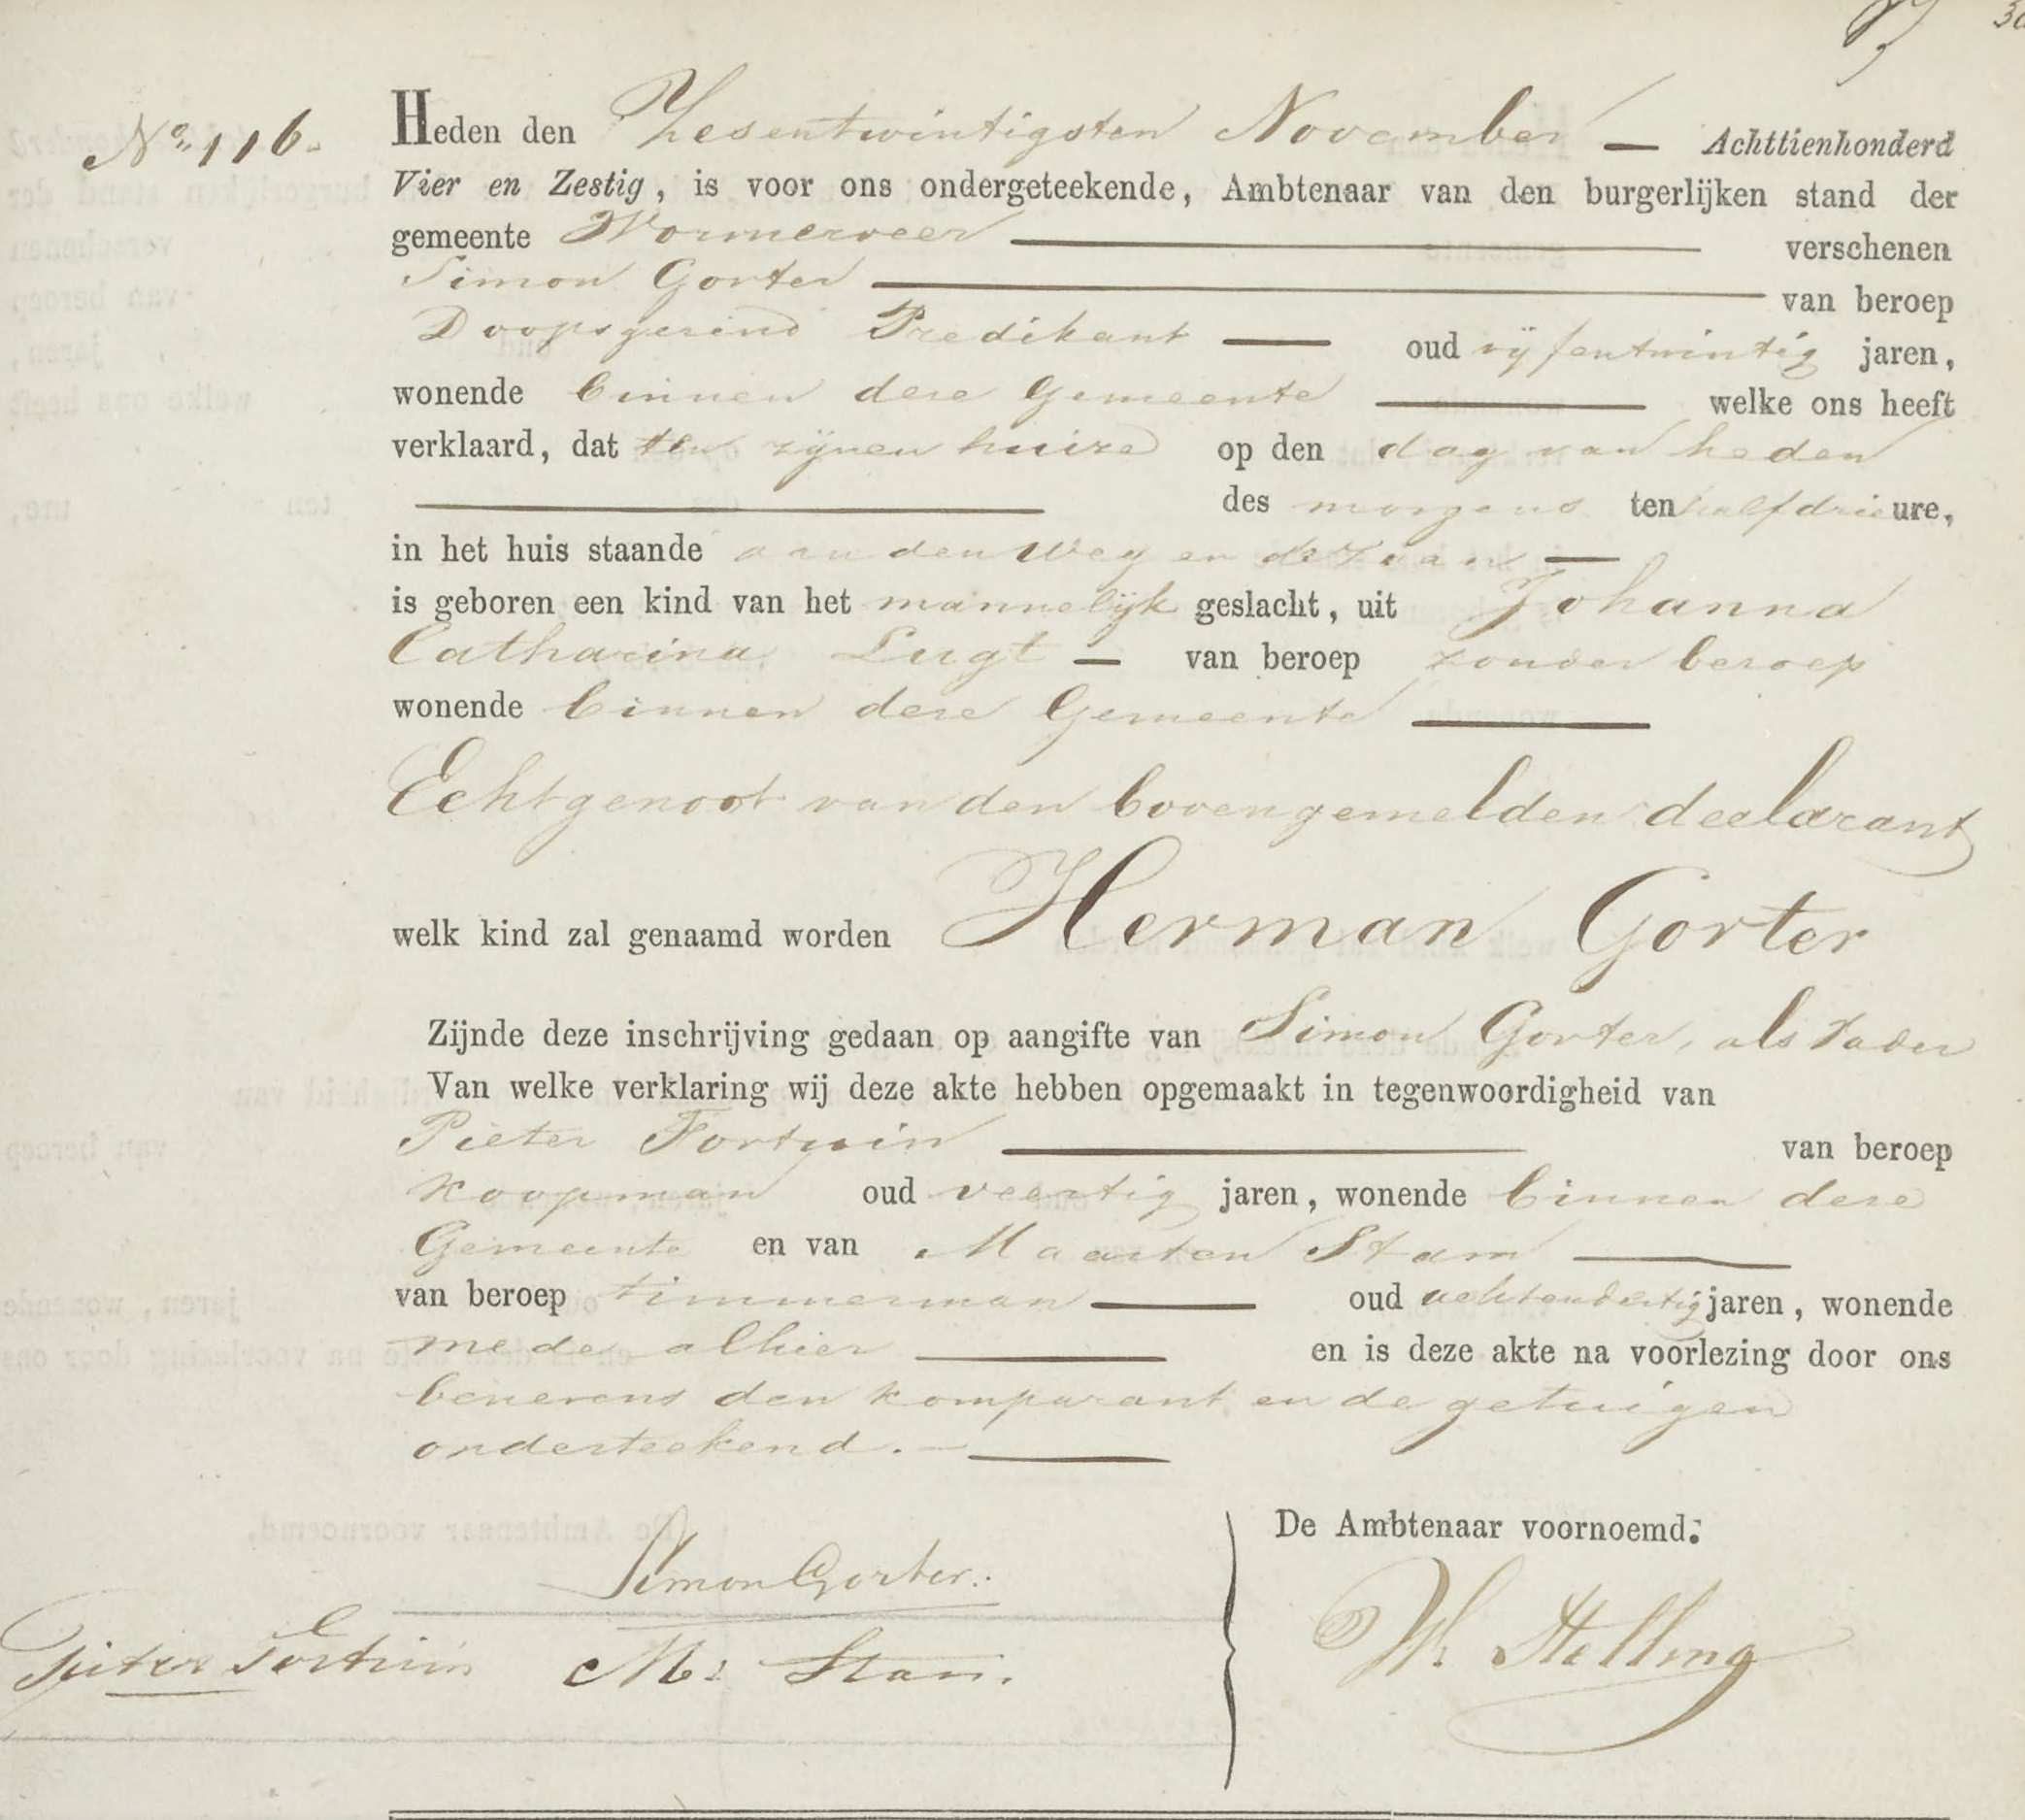 No. 116.
Heden den Zesentwintigsten November — Achttienhonderd
Vier en Zestig, is voor ons ondergeteekende, Ambtenaar van den burgerlijken stand der
gemeente Wormerveer verschenen
Simon Gorter van beroep
Doopsgezind Predikant oud vijfentwintig jaren,
wonende binnen deze Gemeente welke ons heeft
verklaard, dat ten zijnen huize op den dag van heden
des morgens ten half drie ure,
in het huis staande aan den Weg en de Zaan
is geboren een kind van het mannelijk geslacht, uit Johanna
Catharina Lugt van beroep zonder beroep
wonende binnen deze Gemeente
Echtgenoot van den bovengemelden declarant
welk kind zal genaamd worden Herman Gorter
Zijnde deze inschrijving gedaan op aangifte van Simon Gorter, als Vader
Van welke verklaring wij deze akte hebben opgemaakt in tegenwoordigheid van
Pieter Fortuin van beroep
Koopman oud veertig jaren, wonende binnen deze
Gemeente en van Maarten Stam
van beroep timmerman oud achtendertig jaren, wonende
mede alhier en is deze akte na voorlezing door ons
benevens den komparant en de getuigen
onderteekend.
De Ambtenaar voornoemd:
Simon Gorter.
Pieter Fortuin M: Stam.
Stelling